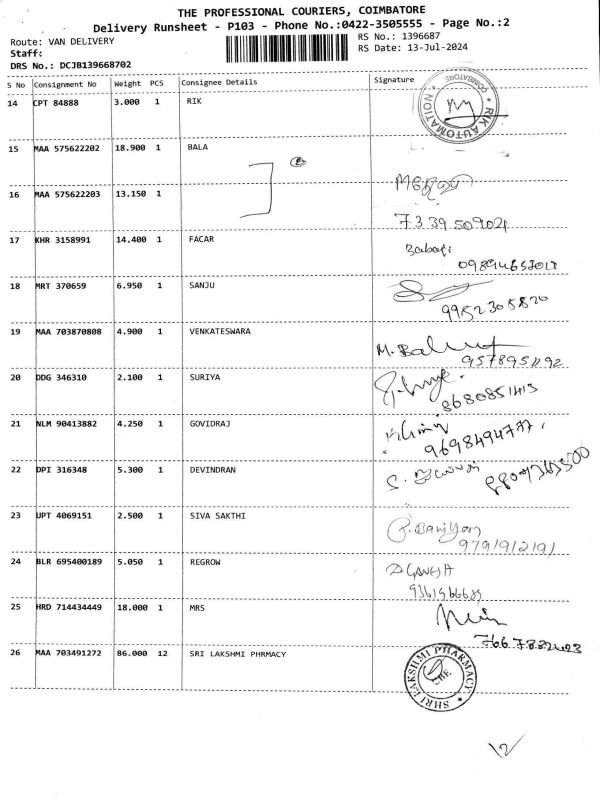 THE PROFESSIONAL COURIERS, COIMBATORE
Delivery Runsheet - P103 - Phone No.:0422-3505555 - Page No.:2
Route: VAN DELIVERY
RS No.: 1396687
Staff:
RS Date: 13-Jul-2024
DRS No.: DCJB139668702
S No Consignment No Weight PCS Consignee Details Signature
14 CPT 84888 3.000 1 RIK
RIK AUTOMATION COIMBATORE
15 MAA 575622202 18.900 1 BALA
16 MAA 575622203 13.150 1
7339509021
17 KHR 3158991 14.400 1 FACAR
Babaji
18 MRT 370659 6.950 1 SANJU
9952305820
19 MAA 703870808 4.900 1 VENKATESWARA
20 DDG 346310 2.100 1 SURIYA
21 NLM 90413882 4.250 1 GOVIDRAJ
9698494777
22 DPI 316348 5.300 1 DEVINDRAN
23 UPT 4069151 2.500 1 SIVA SAKTHI
9791912191
24 BLR 695400189 5.050 1 REGROW
25 HRD 714434449 18.000 1 MRS
26 MAA 703491272 86.000 12 SRI LAKSHMI PHRMACY
SHRI LAKSHMI PHARMACY
CBE
12